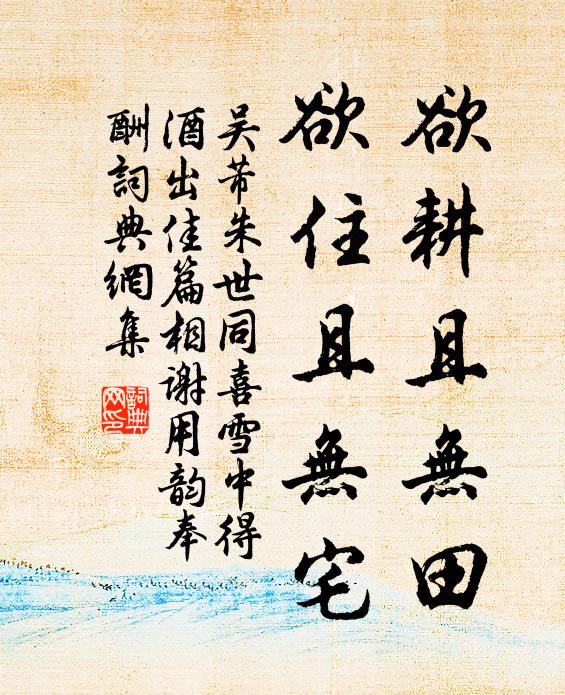 欲耕且無田
欲住且無宅
吴芾朱世同喜雪中得
酒出佳篇相谢用韵奉
酬詞典網集
詞典
网印